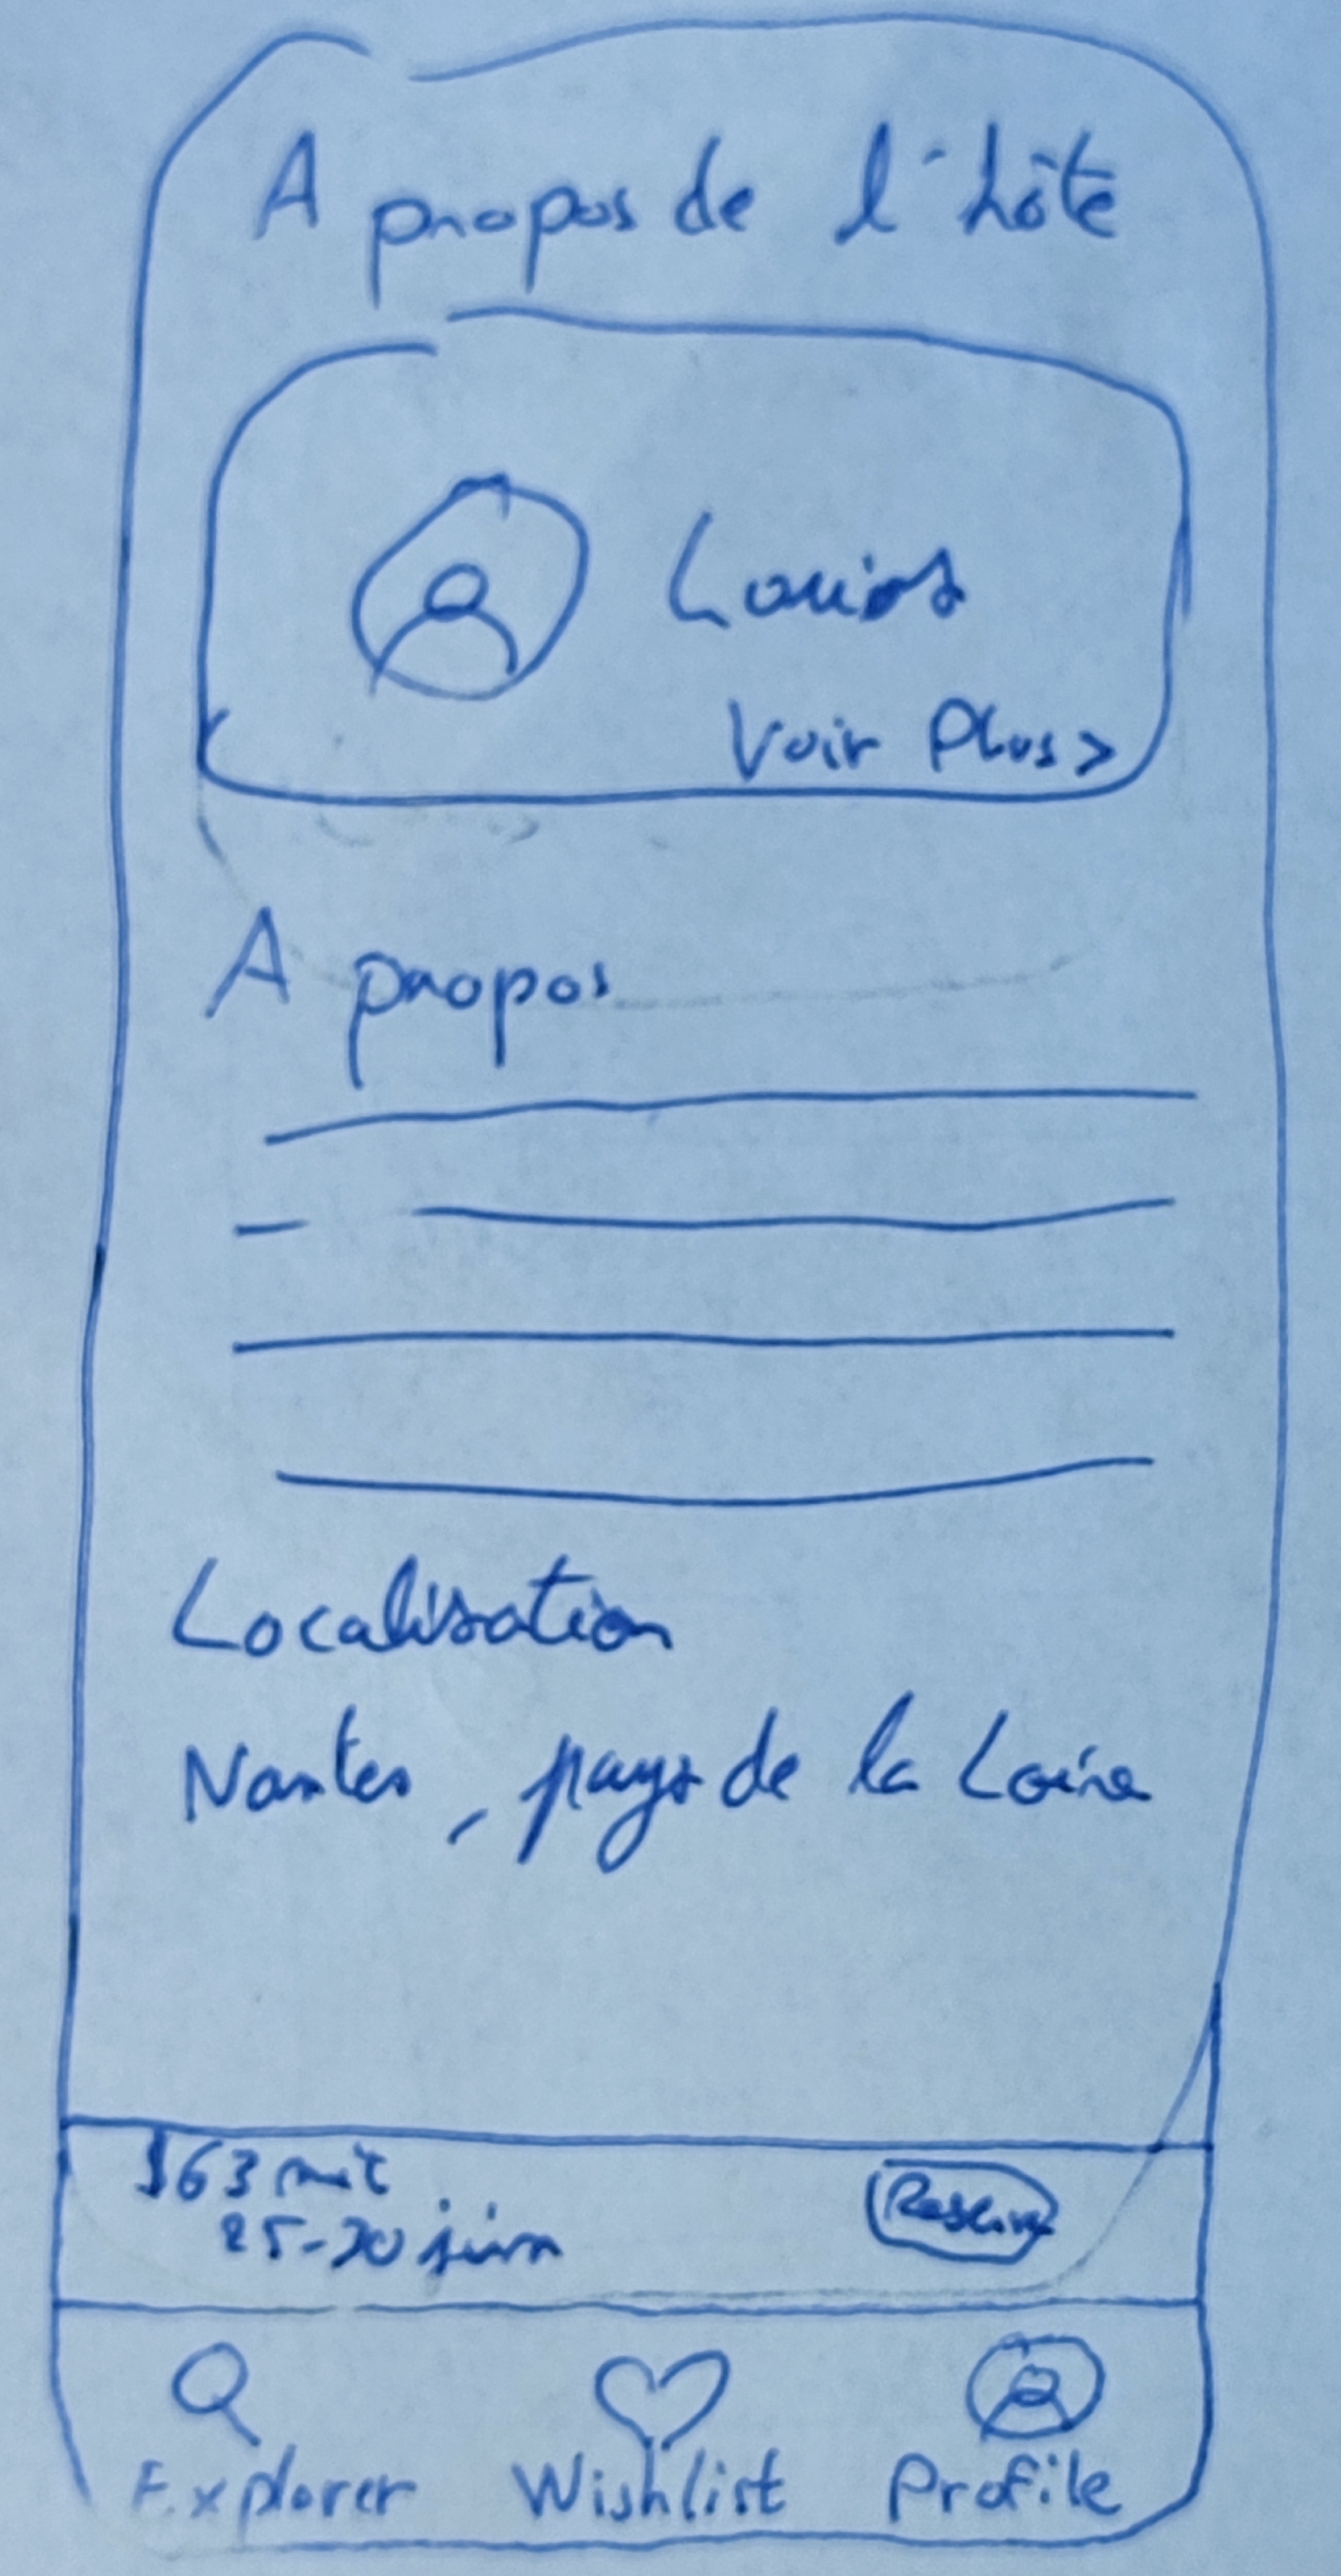 A propos de l'hôte
Louis
Voir Plus >
A propos
Localisation
Nantes, pays de la Loire
$63 nuit
25-30 juin
Explorer Wishlist Profile